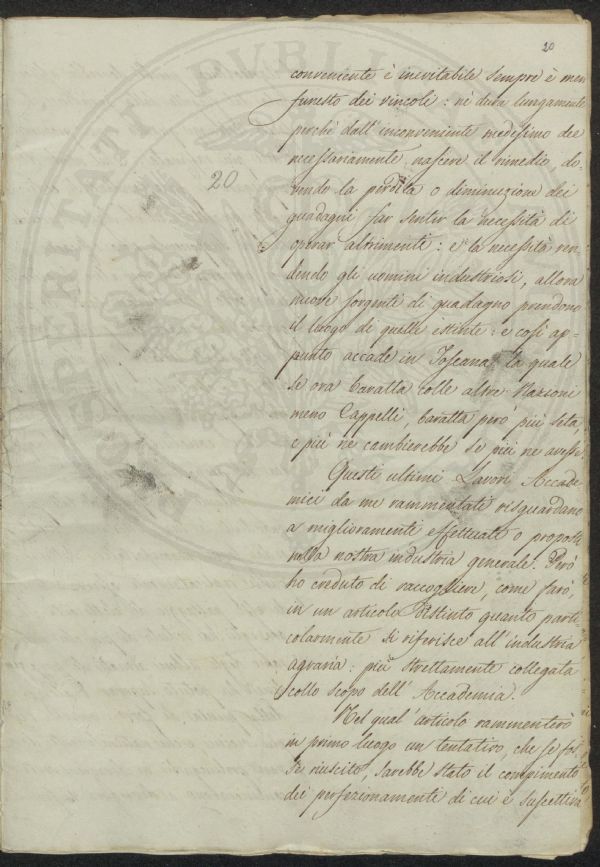 20
conveniente è inevitabile sempre è men
funesto dei vincoli: nè dura lungamente
perchè dall'inconveniente medesimo dee
necessariamente nascere il rimedio, do-
vendo la perdita o diminuzione dei
20
guadagni far sentir la necessità di
operar altrimenti: e la necessità ren-
dendo gli uomini industriosi, allora
nuove sorgenti di guadagno prendono
il luogo di quelle estinte: e così ap-
punto accade in Toscana, la quale
se ora baratta colle altre Nazioni
meno Cappelli, baratta però più seta,
e più ne cambierebbe se più ne avesse.
Questi ultimi Lavori Accade-
mici da me rammentati risguardano
a miglioramenti effettuati o proposti
nella nostra industria generale. Però
ho creduto di raccogliere, come farò,
in un articolo distinto quanto parti-
colarmente si riferisce all'industria
agraria: più strettamente collegata
collo scopo dell'Accademia.
Nel qual'articolo rammenterò
in primo luogo un tentativo, che se fos-
se riuscito, sarebbe stato il compimento
dei perfezionamenti di cui è suscettiva